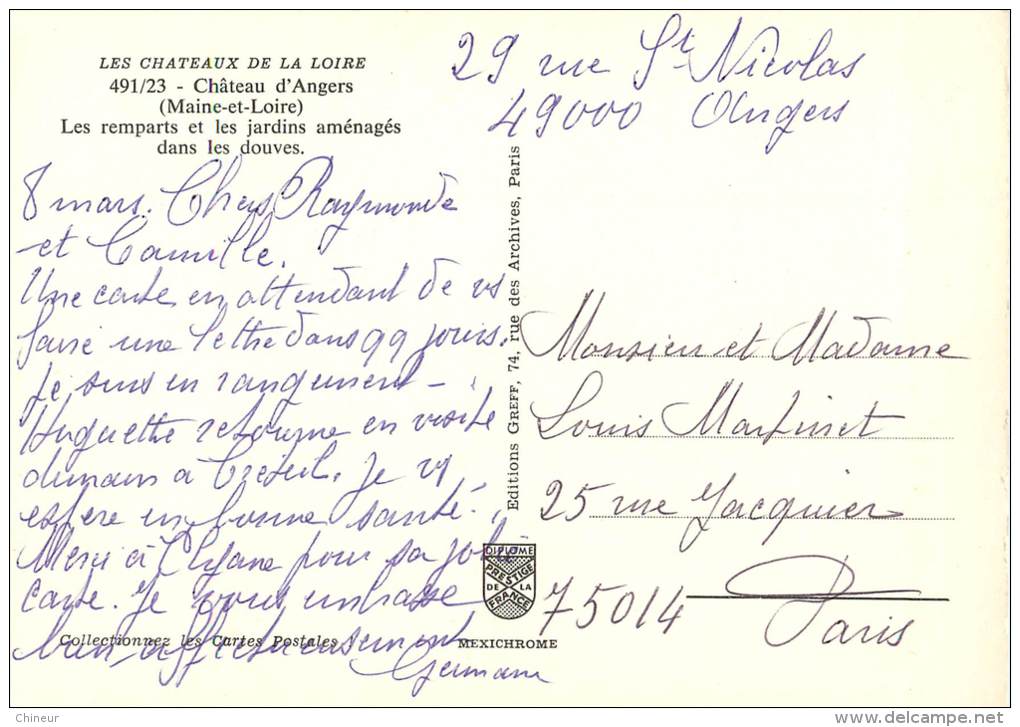 LES CHATEAUX DE LA LOIRE
491/23 - Château d'Angers
(Maine-et-Loire)
Les remparts et les jardins aménagés
dans les douves.
29 rue St Nicolas
49000 Angers
8 mars. Chers Raymonde
et Camille.
Une carte en attendant de vs
faire une lettre dans qq jours.
Je suis en rangement -
Huguette retourne en visite
demain à Créteil. Je vs
espère en bonne santé.
Merci à Lysane pour sa jolie
carte. Je vous embrasse
bien affectueusement
Germaine
Editions GREFF, 74, rue des Archives, Paris
Monsieur et Madame
Louis Martinet
25 rue Jacquier
75014 Paris
DIPLOME
PRESTIGE
DE LA
FRANCE
Collectionnez les Cartes Postales !
MEXICHROME
Chineur
www.delcampe.net